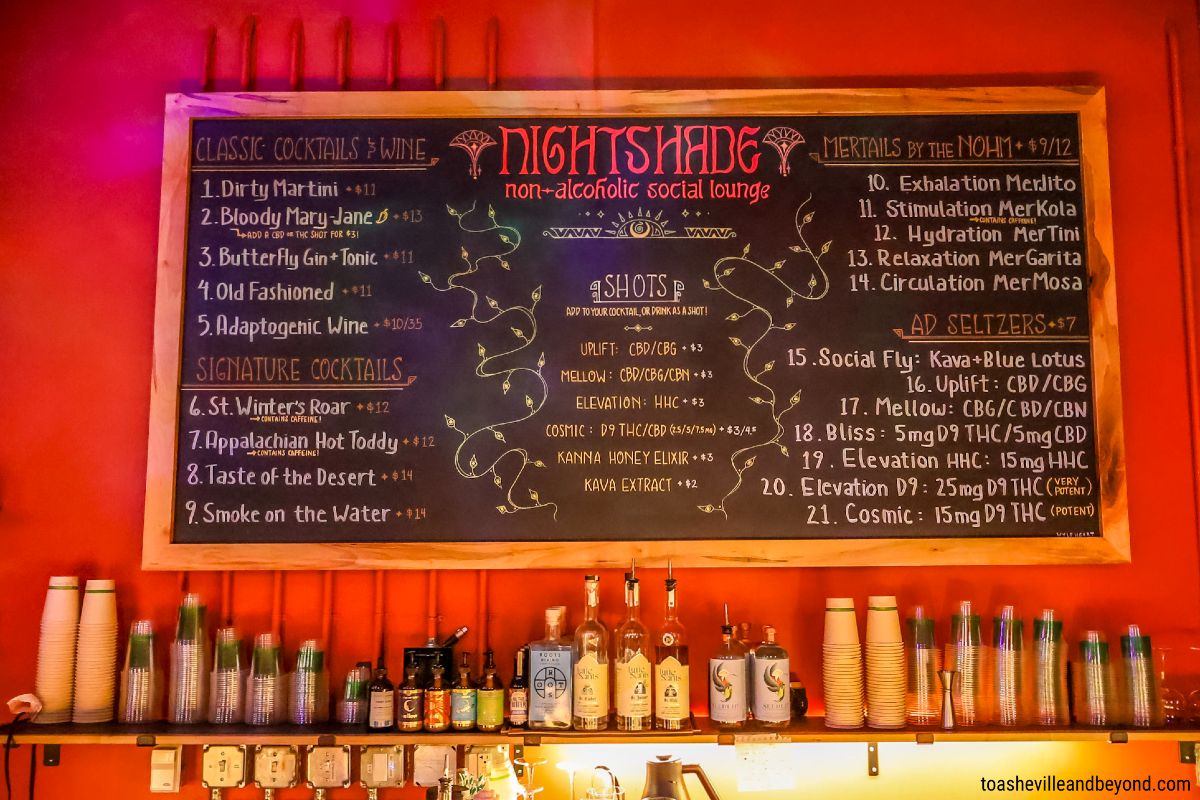 NIGHTSHADE
non-alcoholic social lounge
CLASSIC COCKTAILS & WINE
1. Dirty Martini + $11
2. Bloody Mary-Jane + $13
ADD A CBD OR THC SHOT FOR $3!
3. ButterFly Gin + Tonic + $11
4. Old Fashioned + $11
5. Adaptogenic Wine + $10/35
SIGNATURE COCKTAILS
6. St. Winter's Roar + $12
CONTAINS CAFFEINE!
7. Appalachian Hot Toddy + $12
CONTAINS CAFFEINE!
8. Taste of the Desert + $14
9. Smoke on the Water + $14
SHOTS
ADD TO YOUR COCKTAIL, OR DRINK AS A SHOT!
UPLIFT: CBD/CBG + $3
MELLOW: CBD/CBG/CBN + $3
ELEVATION: HHC + $3
COSMIC: D9 THC/CBD (2.5/5/7.5MG) + $3/4.5
KANNA HONEY ELIXIR + $3
KAVA EXTRACT + $2
MERTAILS BY THE NOHM + $9/12
10. Exhalation MerJito
11. Stimulation MerKola
CONTAINS CAFFEINE!
12. Hydration MerTini
13. Relaxation MerGarita
14. Circulation MerMosa
AD SELTZERS + $7
15. Social Fly: Kava + Blue Lotus
16. Uplift: CBD/CBG
17. Mellow: CBG/CBD/CBN
18. Bliss: 5mg D9 THC/5mg CBD
19. Elevation HHC: 15mg HHC
20. Elevation D9: 25mg D9 THC (VERY POTENT)
21. Cosmic: 15mg D9 THC (POTENT)
ROOTS
toashevilleandbeyond.com